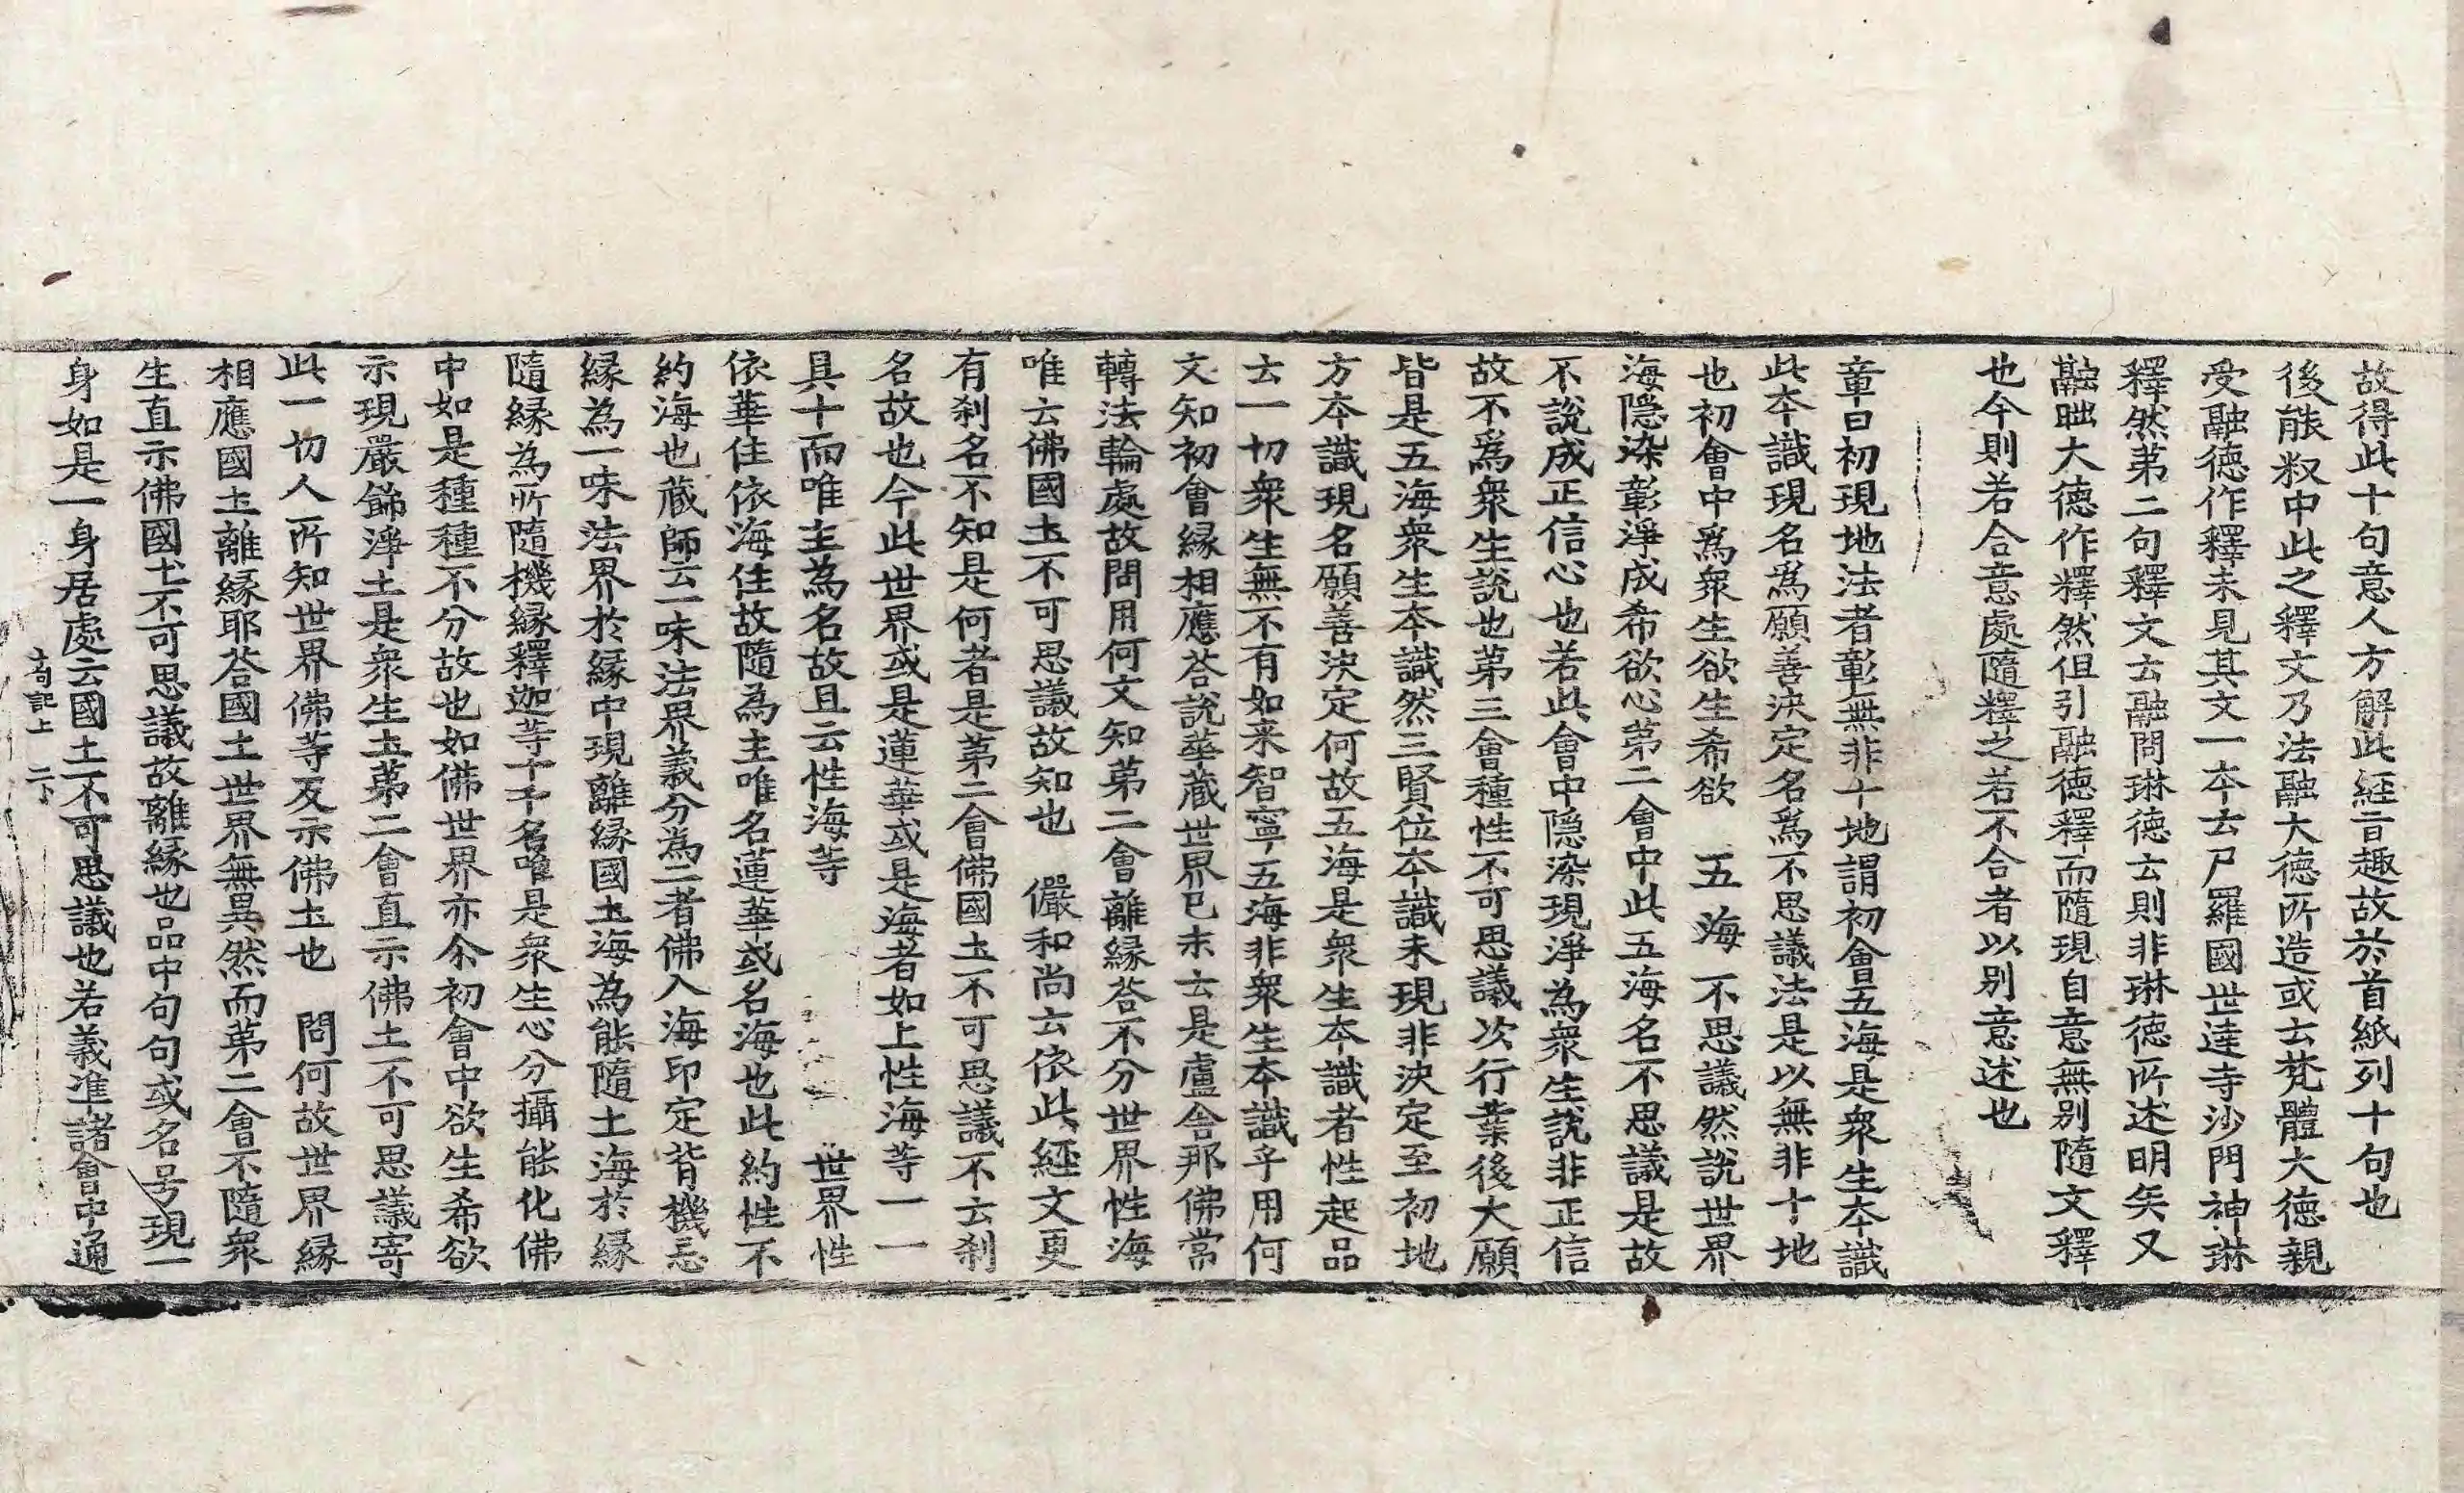 故得此十句意人方解此経旨趣故於首紙列十句也
後能㭊中此之釋文乃法融大德所造或云梵體大德親
受融德作釋未見其文一本云尸羅國世達寺沙門神琳
釋然第二句釋文云融問琳德云則非琳德所述明矣又
融朏大德作釋然但引融德釋而隨現自意無别隨文釋
也今則若合意處隨釋之若不合者以别意述也
章曰初現地法者彰無非十地謂初會五海是衆生本識
此本識現名爲願善決定名爲不思議法是以無非十地
也初會中爲衆生欲生希欲 五海 不思議然說世界
海隠染彰淨成希欲心第二會中此五海名不思議是故
不說成正信心也若此會中隠染現淨為衆生說非正信
故不爲衆生說也第三會種性不可思議次行業後大願
皆是五海衆生本識然三賢位本識未現非決定至初地
方本識現名願善決定何故五海是衆生本識者性起品
云一切衆生無不有如来智寧五海非衆生本識乎用何
文知初會緣相應荅說華蔵世界已末云是盧舎那佛常
轉法輪處故問用何文知第二會離縁荅不分世界性海
唯云佛國圡不可思議故知也 儼和尚云依此経文更
有刹名不知是何者是第二會佛國圡不可思議不云刹
名故也今此世界或是蓮華或是海者如上性海等一一
具十而唯主為名故且云性海等 世界性
依華住依海住故隨為主唯名蓮華或名海也此約性不
約海也蔵師云一味法界義分為二者佛入海印定背機忘
緣為一味法界於緣中現離緣國圡海為能隨土海於緣
隨緣為所隨機緣釋迦等十千名唯是衆生心分攝能化佛
中如是種種不分故也如佛世界亦尒初會中欲生希欲
示現嚴餙淨土是衆生圡第二會直示佛土不可思議寄
此一切人所知世界佛等及示佛圡也 問何故世界緣
相應國圡離緣耶荅國土世界無異然而第二會不隨衆
生直示佛國圡不可思議故離緣也品中句句或名号現一
身如是一身居處云國土不可思議也若義准諸會中通
十句記上 二下